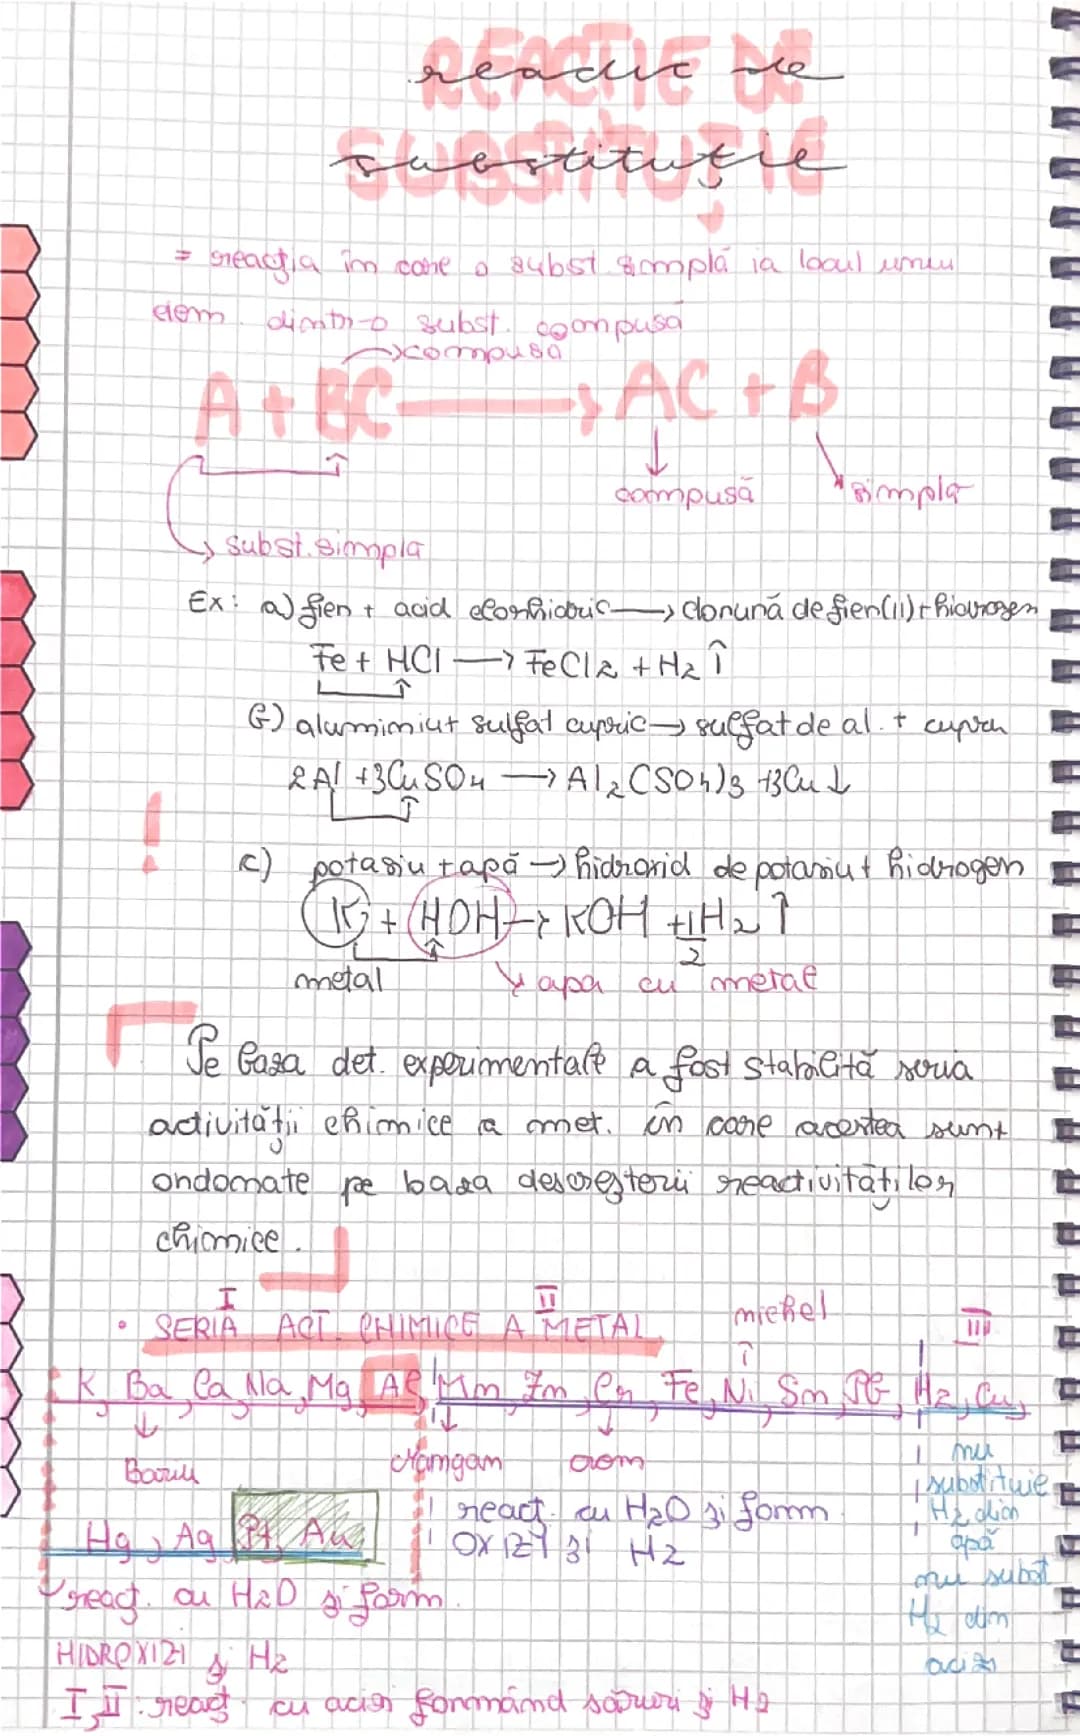 REACȚIE DE
reacție de
SUBSTITUȚIE
substituție
= reacția în care o subst simplă ia locul unui
elem. dintr-o subst. compusă
→compusă
A + BC → AC + B
compusă simplă
subst. simplă
Ex: a) fier + acid clorhidric → clorură de fier(II) + hidrogen
Fe + HCl → FeCl2 + H2 ↑
b) aluminiu + sulfat cupric → sulfat de al. + cupru
2Al + 3CuSO4 → Al2(SO4)3 + 3Cu ↓
!
c) potasiu + apă → hidroxid de potasiu + hidrogen
K + HOH → KOH + 1/2 H2 ↑
metal apa cu metal
Pe baza det. experimentale a fost stabilită seria
activității chimice a met. în care acestea sunt
ordonate pe baza descreșterii reactivităților
chimice.
I II nichel III
• SERIA ACT. CHIMICE A METAL
K, Ba, Ca, Na, Mg, Al, Mn, Zn, Cr, Fe, Ni, Sn, Pb, H2, Cu,
Bariu Mangan crom
Hg, Ag, Pt, Au
react. cu H2O și form
OXIZI și H2
nu
substituie
H2 din
apă
nu subst
H2 din
acizi
react. cu H2O și form.
HIDROXIZI și H2
I, II: react. cu acizi formând săruri și H2